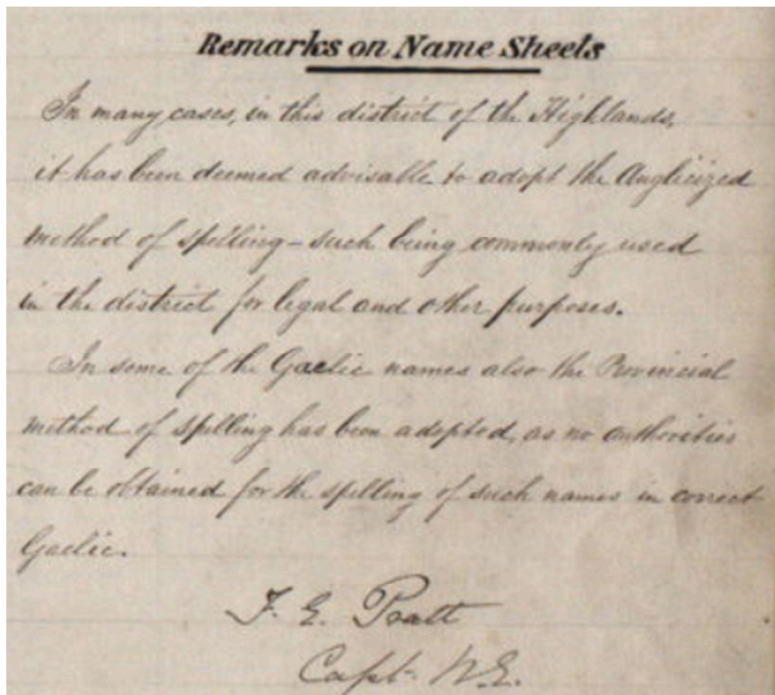 Remarks on Name Sheets
In many cases, in this district of the Highlands,
it has been deemed advisable to adopt the Anglicized
method of spelling – such being commonly used
in the district for legal and other purposes.
In some of the Gaelic names also the Provincial
method of spelling has been adopted, as no authorities
can be obtained for the spelling of such names in correct
Gaelic.
F. E. Pratt
Capt. R.E.